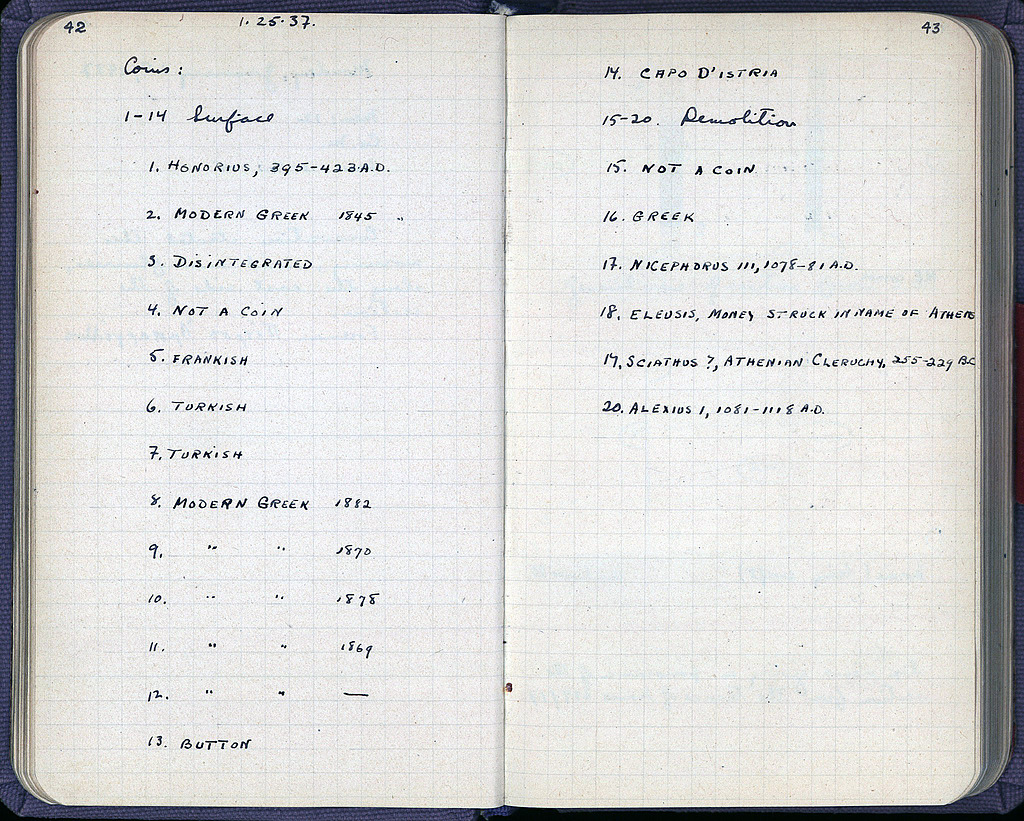 42
1.25.37.
Coins:
1-14 Surface
1. HONORIUS, 395-423 A.D.
2. MODERN GREEK 1845
3. DISINTEGRATED
4. NOT A COIN
5. FRANKISH
6. TURKISH
7. TURKISH
8. MODERN GREEK 1882
9. " " 1870
10. " " 1878
11. " " 1869
12. " " —
13. BUTTON
43
14. CAPO D'ISTRIA
15-20. Demolition
15. NOT A COIN
16. GREEK
17. NICEPHORUS III, 1078-81 A.D.
18. ELEUSIS, MONEY STRUCK IN NAME OF ATHENS
19. SCIATHUS?, ATHENIAN CLERUCHY, 255-229 B.C
20. ALEXIUS I, 1081-1118 A.D.